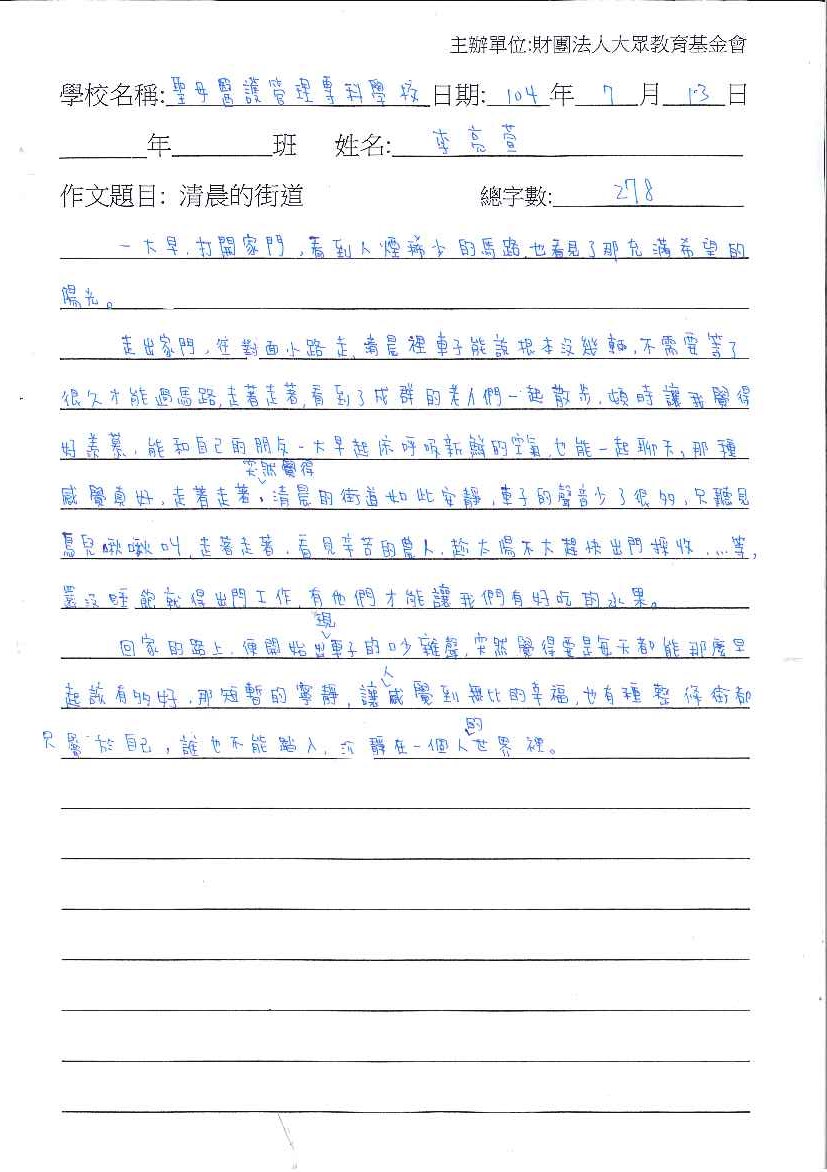 主辦單位:財團法人大眾教育基金會
學校名稱:聖母醫護管理專科學校日期:104年7月13日
年 班 姓名:李亮萱
作文題目: 清晨的街道 總字數:278
一大早,打開家門,看到人煙稀少的馬路,也看見了那充滿希望的
陽光。
走出家門,往對面小路走,清晨裡車子能說根本沒幾輛,不需要等了
很久才能過馬路,走著走著,看到了成群的老人們一起散步,頓時讓我覺得
好羨慕,能和自己的朋友一大早起床呼吸新鮮的空氣,也能一起聊天,那種
感覺真好,走著走著,突然覺得清晨的街道如此安靜,車子的聲音少了很多,只聽見
鳥兒啾啾叫,走著走著,看見辛苦的農人,趁太陽不大趕快出門採收,...等,
還沒睡飽就得出門工作,有他們才能讓我們有好吃的水果。
回家的路上,便開始出現車子的吵雜聲,突然覺得要是每天都能那麼早
起該有多好,那短暫的寧靜,讓人感覺到無比的幸福,也有種整條街都
只屬於自己,誰也不能踏入,沉靜在一個人的世界裡。